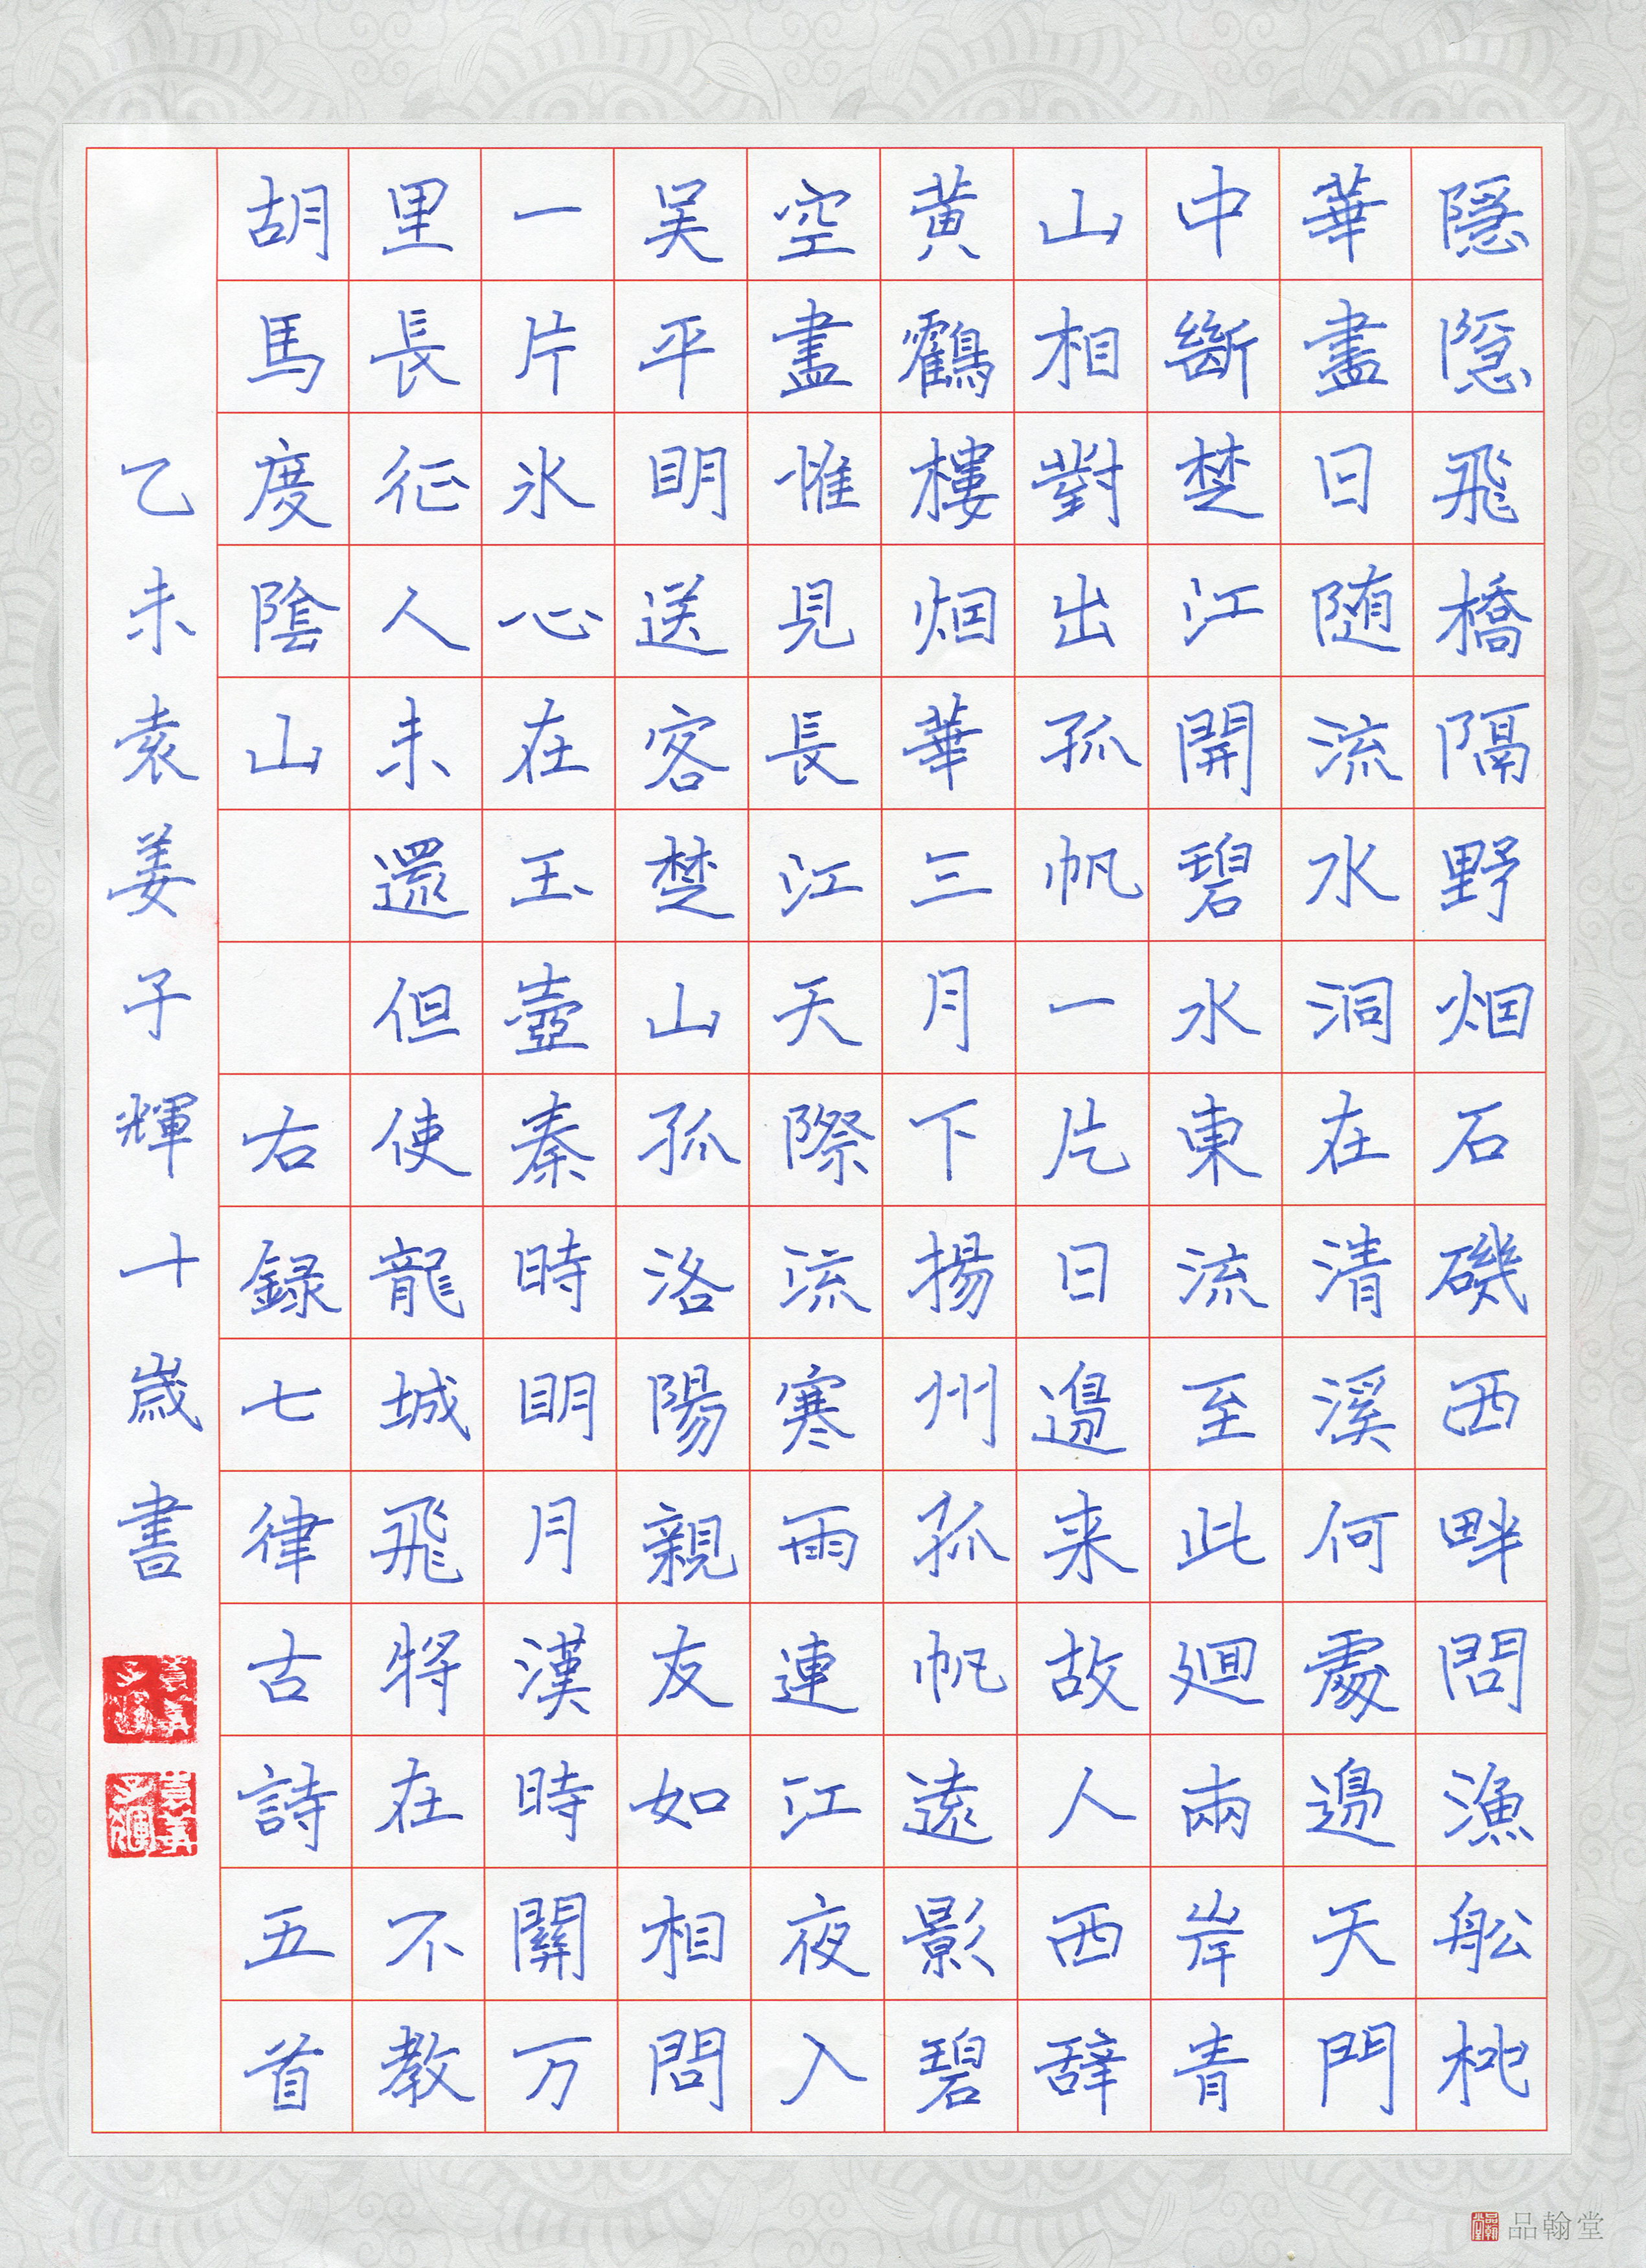 隱隱飛橋隔野烟石磯西畔問漁舩桃
華盡日随流水洞在清溪何處邊天門
中斷楚江開碧水東流至此廻兩岸青
山相對出孤帆一片日邊来故人西辞
黄鶴樓烟華三月下揚州孤帆遠影碧
空盡惟見長江天際流寒雨連江夜入
吴平明送客楚山孤洛陽親友如相問
一片氷心在玉壺秦時明月漢時關万
里長征人未還但使龍城飛將在不教
胡馬度陰山 右録七律古詩五首
乙未袁姜子輝十歲書
品翰堂